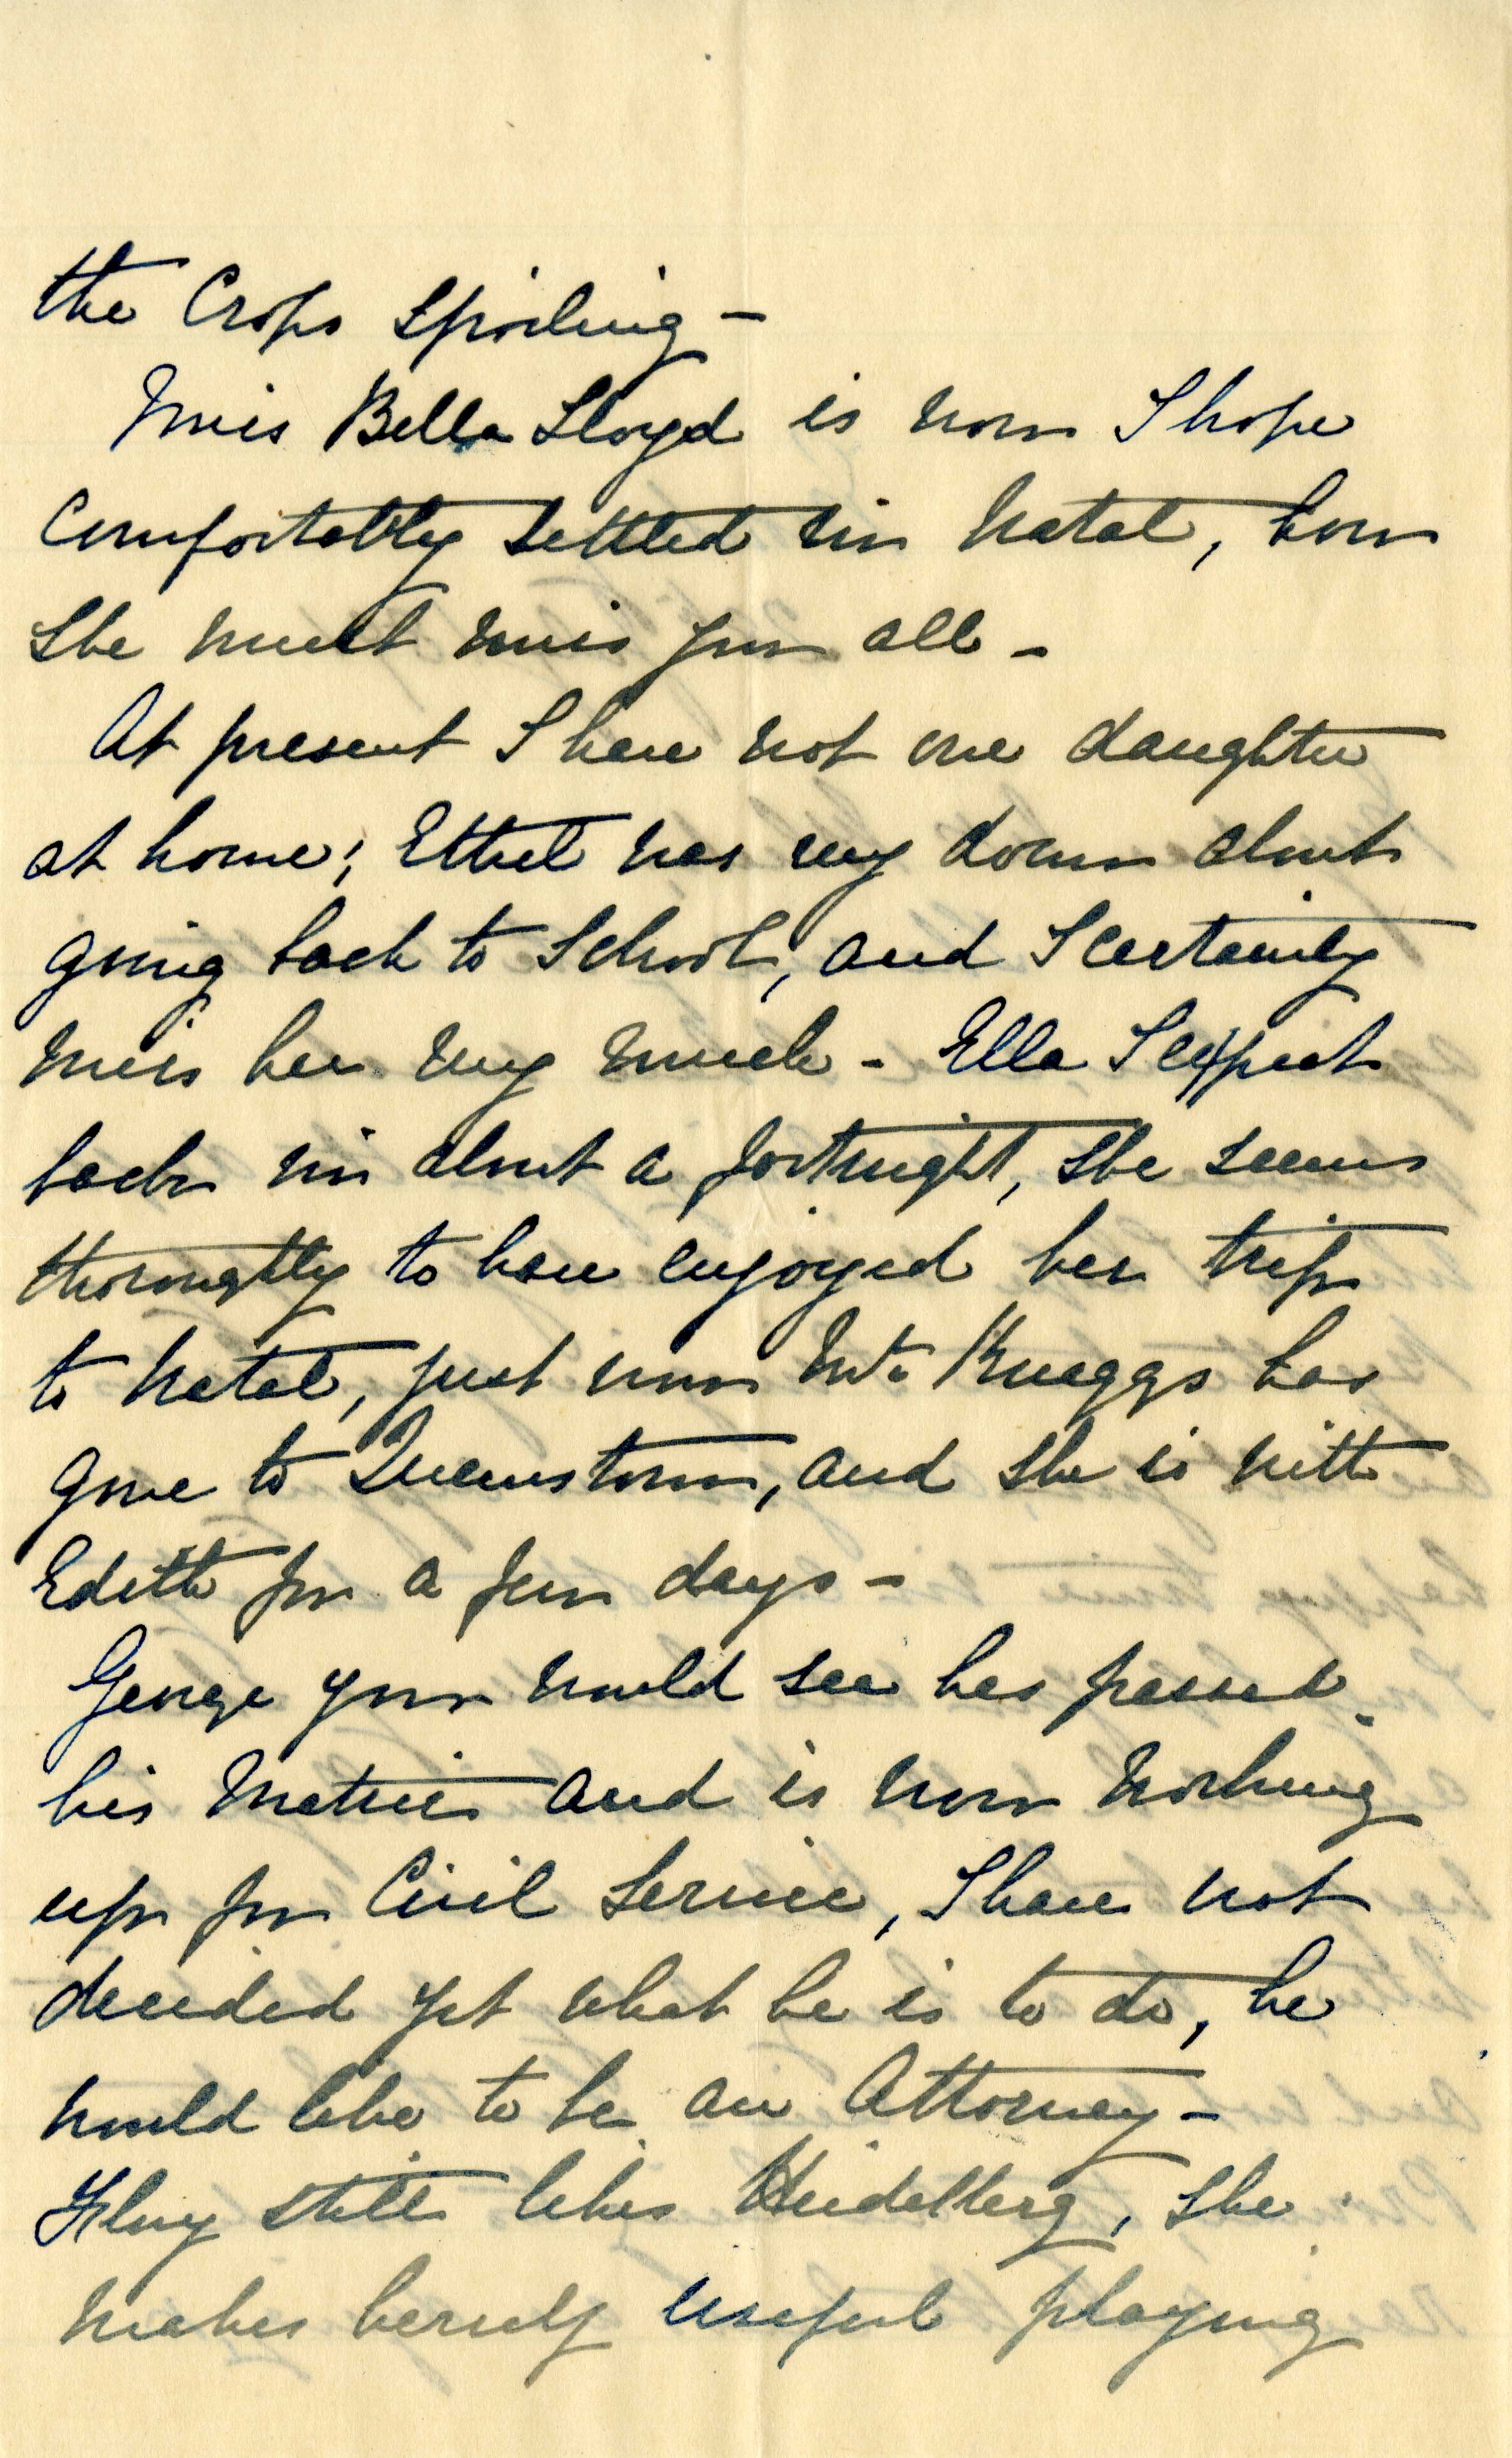 the Crops spoiling –
Miss Bella Lloyd is now I hope
Comfortably settled in Natal, how
she must miss you all –
At present I have not one daughter
at home; Ethel was very down about
going back to School, and I certainly
miss her very much – Ella I expect
back in about a fortnight, she seems
thoroughly to have enjoyed her trip
to Natal, just now Mr. Knaggs has
gone to Queenstown, and she is with
Edith for a few days –
George you would see has passed
his Matric and is now working
up for Civil Service, I have not
decided yet what he is to do, he
would like to be an Attorney –
still likes Heidelberg, she
makes herself useful playing